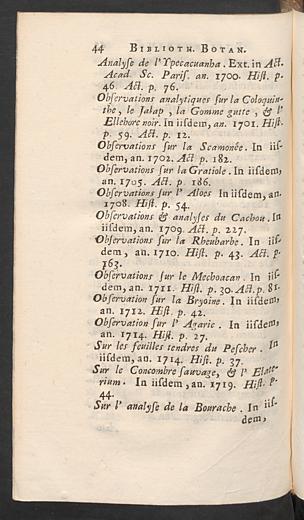 44 BIBLIOTH. BOTAN.
Analyse de l'Ypecacuanha. Ext. in Act.
Acad. Sc. Paris. an. 1700. Hist. p.
46. Act. p. 76.
Observations analytiques sur la Coloquin-
the, le Jalap, la Gomme gutte, & l'
Ellebore noir. In iisdem, an. 1701. Hist.
p. 59. Act. p. 12.
Observations sur la Scamonée. In iis-
dem, an. 1702. Act p. 182.
Observations sur la Gratiole. In iisdem,
an. 1705. Act. p. 186.
Observations sur l' Aloes In iisdem, an.
1708. Hist. p. 54.
Observations & analyses du Cachou. In
iisdem, an. 1709. Act. p. 227.
Observations sur la Rheubarbe. In iis-
dem, an. 1710. Hist. p. 43. Act. p.
163.
Observations sur le Mechoacan. In iis-
dem, an. 1711. Hist. p. 30. Act. p. 81.
Observation sur la Bryoine. In iisdem,
an. 1712. Hist. p. 42.
Observation sur l' Agaric. In iisdem,
an. 1714. Hist. p. 27.
Sur les feuilles tendres du Pescher. In
iisdem, an. 1714. Hist. p. 37.
Sur le Concombre sauvage, & l' Elate-
rium. In iisdem, an. 1719. Hist. p.
44.
Sur l' analyse de la Bourache. In iis-
dem,